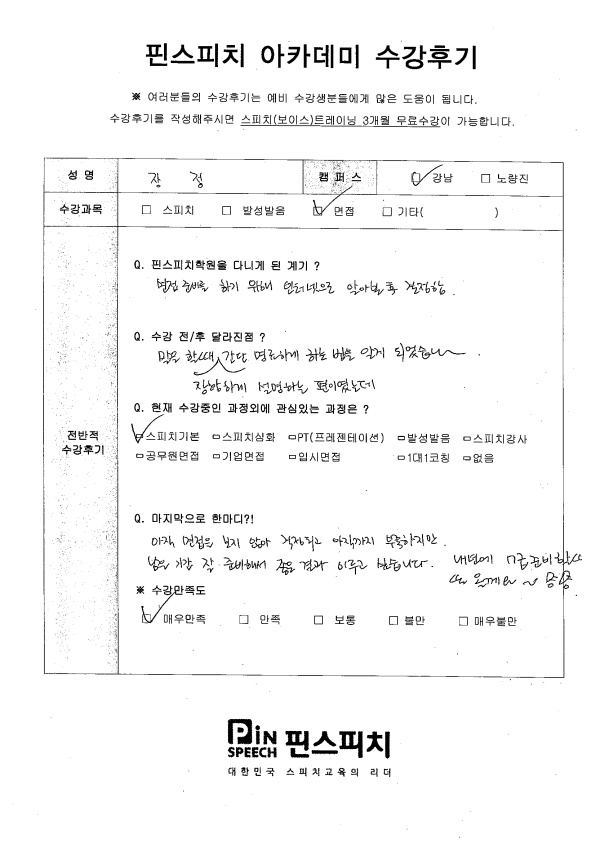 핀스피치 아카데미 수강후기
※ 여러분들의 수강후기는 예비 수강생분들에게 많은 도움이 됩니다.
수강후기를 작성해주시면 스피치(보이스)트레이닝 3개월 무료수강이 가능합니다.
성 명 장 정 캠 퍼 스 ☑ 강남 □ 노량진
수강과목 □ 스피치 □ 발성발음 ☑ 면접 □ 기타( )
전반적
수강후기
Q. 핀스피치학원을 다니게 된 계기 ?
면접 준비를 하기 위해 인터넷으로 알아본 후 결정함.
Q. 수강 전/후 달라진점 ?
말을 할 때 간단 명료하게 하는 법을 알게 되었습니다.
장황하게 설명하는 편이였는데
Q. 현재 수강중인 과정외에 관심있는 과정은 ?
☑스피치기본 □스피치심화 □PT(프레젠테이션) □발성발음 □스피치강사
□공무원면접 □기업면접 □입시면접 □1대1코칭 □없음
Q. 마지막으로 한마디?!
아직 면접을 보지 않아 걱정되고 아직까지 부족하지만
남은 기간 잘 준비해서 좋은 결과 이루고 싶습니다. 내년에 7급준비할때
또 올게요 ~
※ 수강만족도
☑ 매우만족 □ 만족 □ 보통 □ 불만 □ 매우불만
PiN SPEECH 핀스피치
대한민국 스피치교육의 리더